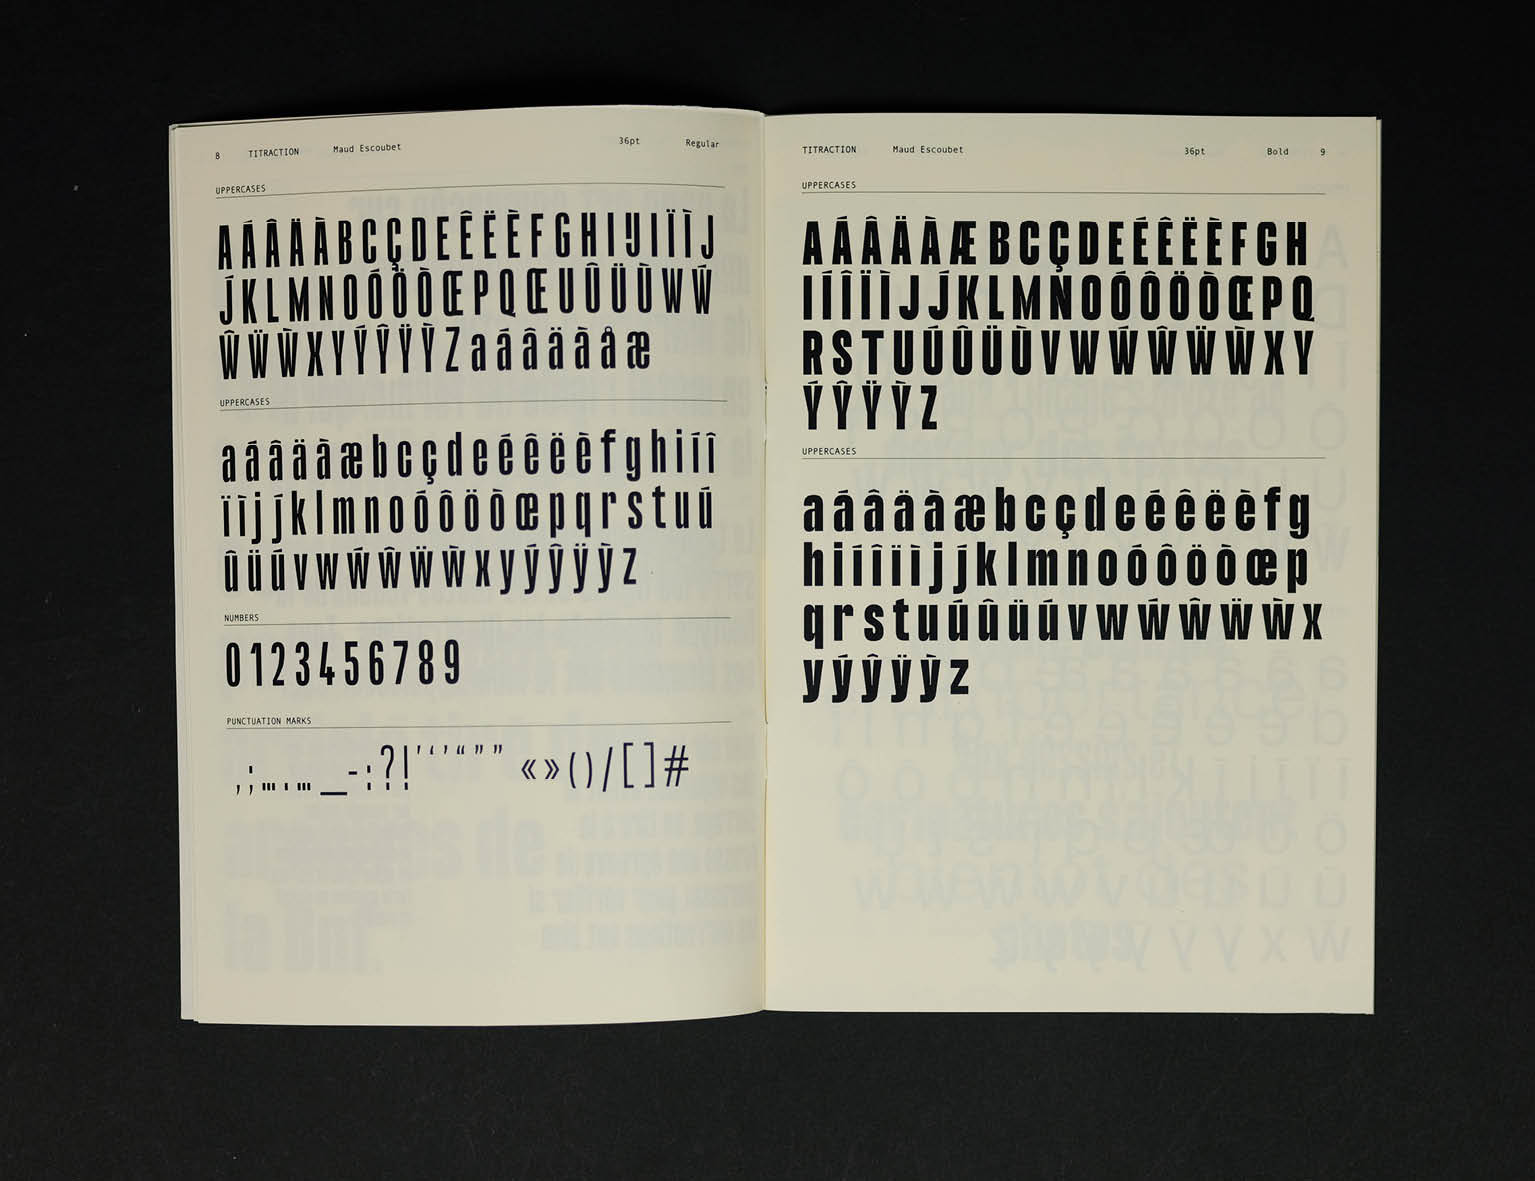 8 TITRACTION Maud Escoubet 36pt Regular
UPPERCASES
AÁÂÄÀBCÇDEÊËÈFGHIĲIÏÌJ
J́KLMNOÓÖÒŒPQŒUÛÜÙWẂ
ŴẄẀXYÝŶŸỲZaáâäàåæ
UPPERCASES
aáâäàæbcçdeéêëèfghiíî
ïìjj́klmnoóôöòœpqrstuú
ûüúvwẃŵẅẁxyýŷÿỳz
NUMBERS
0123456789
PUNCTUATION MARKS
,;….…_-:?!'‘’“”” «»()/[]#
TITRACTION Maud Escoubet 36pt Bold 9
UPPERCASES
AÁÂÄÀÆBCÇDEÉÊËÈFGH
IÍÎÏÌJJ́KLMNOÓÔÖÒŒPQ
RSTUÚÛÜÙVWẂŴẄẀXY
ÝŶŸỲZ
UPPERCASES
aáâäàæbcçdeéêëèfg
hiíîïìjj́klmnoóôöòœp
qrstuúûüúvwẃŵẅẁx
yýŷÿỳz